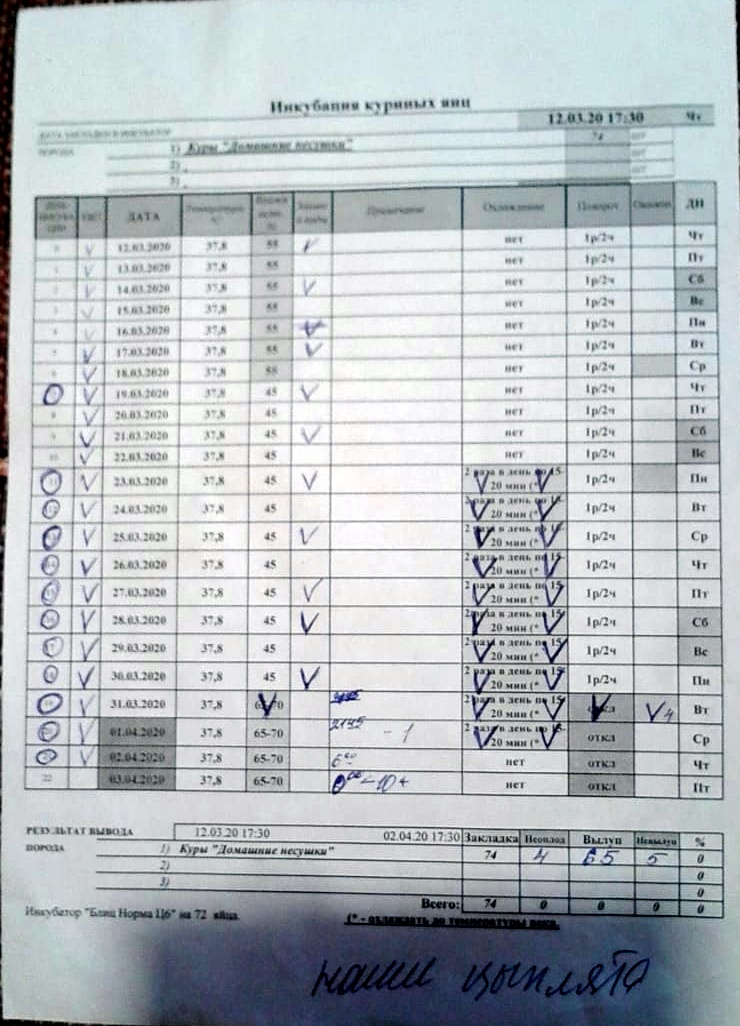 Инкубация куриных яиц
12.03.20 17:30 Чт
ДАТА ЗАКЛАДКИ В ИНКУБАТОР 74 шт
ПОРОДА 1) Куры "Домашние несушки"
2)
3)
ДАТА Охлаждение Поворот ДН
0 12.03.2020 37,8 55 нет 1р/2ч Чт
1 13.03.2020 37,8 55 нет 1р/2ч Пт
2 14.03.2020 37,8 55 нет 1р/2ч Сб
3 15.03.2020 37,8 55 нет 1р/2ч Вс
4 16.03.2020 37,8 55 нет 1р/2ч Пн
5 17.03.2020 37,8 55 нет 1р/2ч Вт
6 18.03.2020 37,8 55 нет 1р/2ч Ср
7 19.03.2020 37,8 45 нет 1р/2ч Чт
8 20.03.2020 37,8 45 нет 1р/2ч Пт
9 21.03.2020 37,8 45 нет 1р/2ч Сб
10 22.03.2020 37,8 45 нет 1р/2ч Вс
11 23.03.2020 37,8 45 2 раза в день по 15-20 мин (* 1р/2ч Пн
12 24.03.2020 37,8 45 2 раза в день по 15-20 мин (* 1р/2ч Вт
13 25.03.2020 37,8 45 2 раза в день по 15-20 мин (* 1р/2ч Ср
14 26.03.2020 37,8 45 2 раза в день по 15-20 мин (* 1р/2ч Чт
15 27.03.2020 37,8 45 2 раза в день по 15-20 мин (* 1р/2ч Пт
16 28.03.2020 37,8 45 2 раза в день по 15-20 мин (* 1р/2ч Сб
17 29.03.2020 37,8 45 2 раза в день по 15-20 мин (* 1р/2ч Вс
18 30.03.2020 37,8 45 2 раза в день по 15-20 мин (* 1р/2ч Пн
19 31.03.2020 37,8 65-70 2 раза в день по 15-20 мин (* откл 4 Вт
20 01.04.2020 37,8 65-70 2145 - 1 2 раза в день по 15-20 мин (* откл Ср
21 02.04.2020 37,8 65-70 6 00 нет откл Чт
22 03.04.2020 37,8 65-70 нет откл Пт
РЕЗУЛЬТАТ ВЫВОДА 12.03.20 17:30 02.04.20 17:30 Закладка Неоплод Вылуп Невылуп %
ПОРОДА 1) Куры "Домашние несушки" 74 4 65 5 0
2) 0
3) 0
Всего: 74 0 0 0 0
Инкубатор "Блиц Норма Ц6" на 72 яйца. (* - охлаждать до температуры века.
наши цыплята